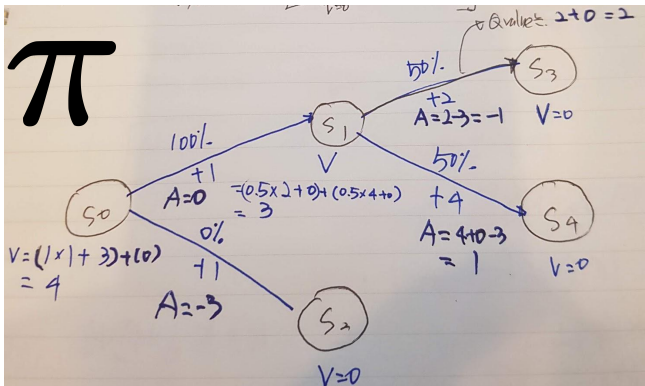 π
Qvalue: 2+0=2
50%
S3
+2
A=2-3=-1
V=0
S1
100%
+1
A=0
V
=(0.5×2+0)+(0.5×4+0)
= 3
50%
+4
S4
A=4+0-3
= 1
V=0
S0
V=(1×1+3)+(0)
= 4
0%
+1
A=-3
S2
V=0